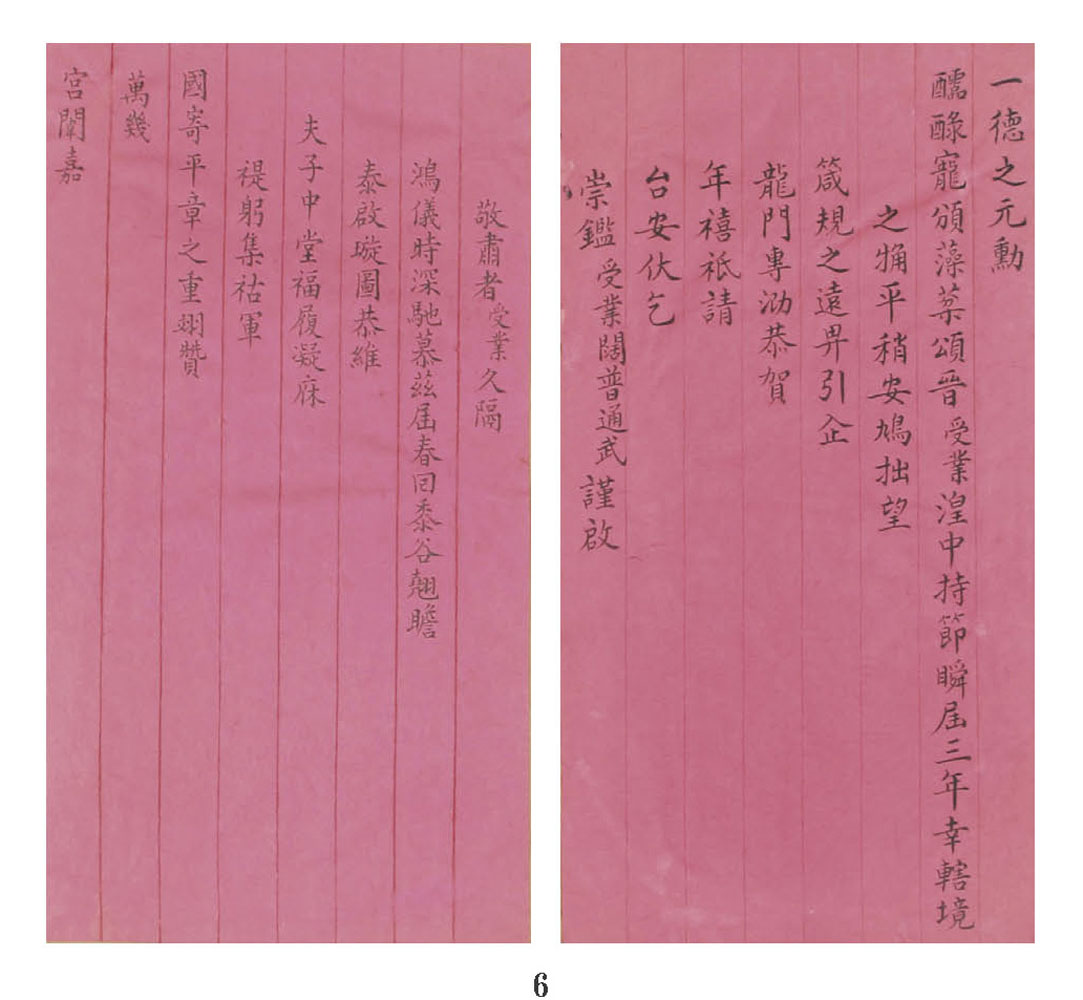 敬肅者受業久隔
鴻儀時深馳慕茲届春回黍谷翹瞻
泰啟璇圖恭維
夫子中堂福履凝庥
禔躬集祜軍
國寄平章之重翊贊
萬幾
宮闈嘉
一德之元勳
醹醁寵頒藻棻頌晉受業湟中持節瞬届三年幸轄境
之觕平稍安鳩拙望
箴規之遠畀引企
龍門專泐恭賀
年禧祗請
台安伏乞
崇鑑受業闊普通武謹啟
6